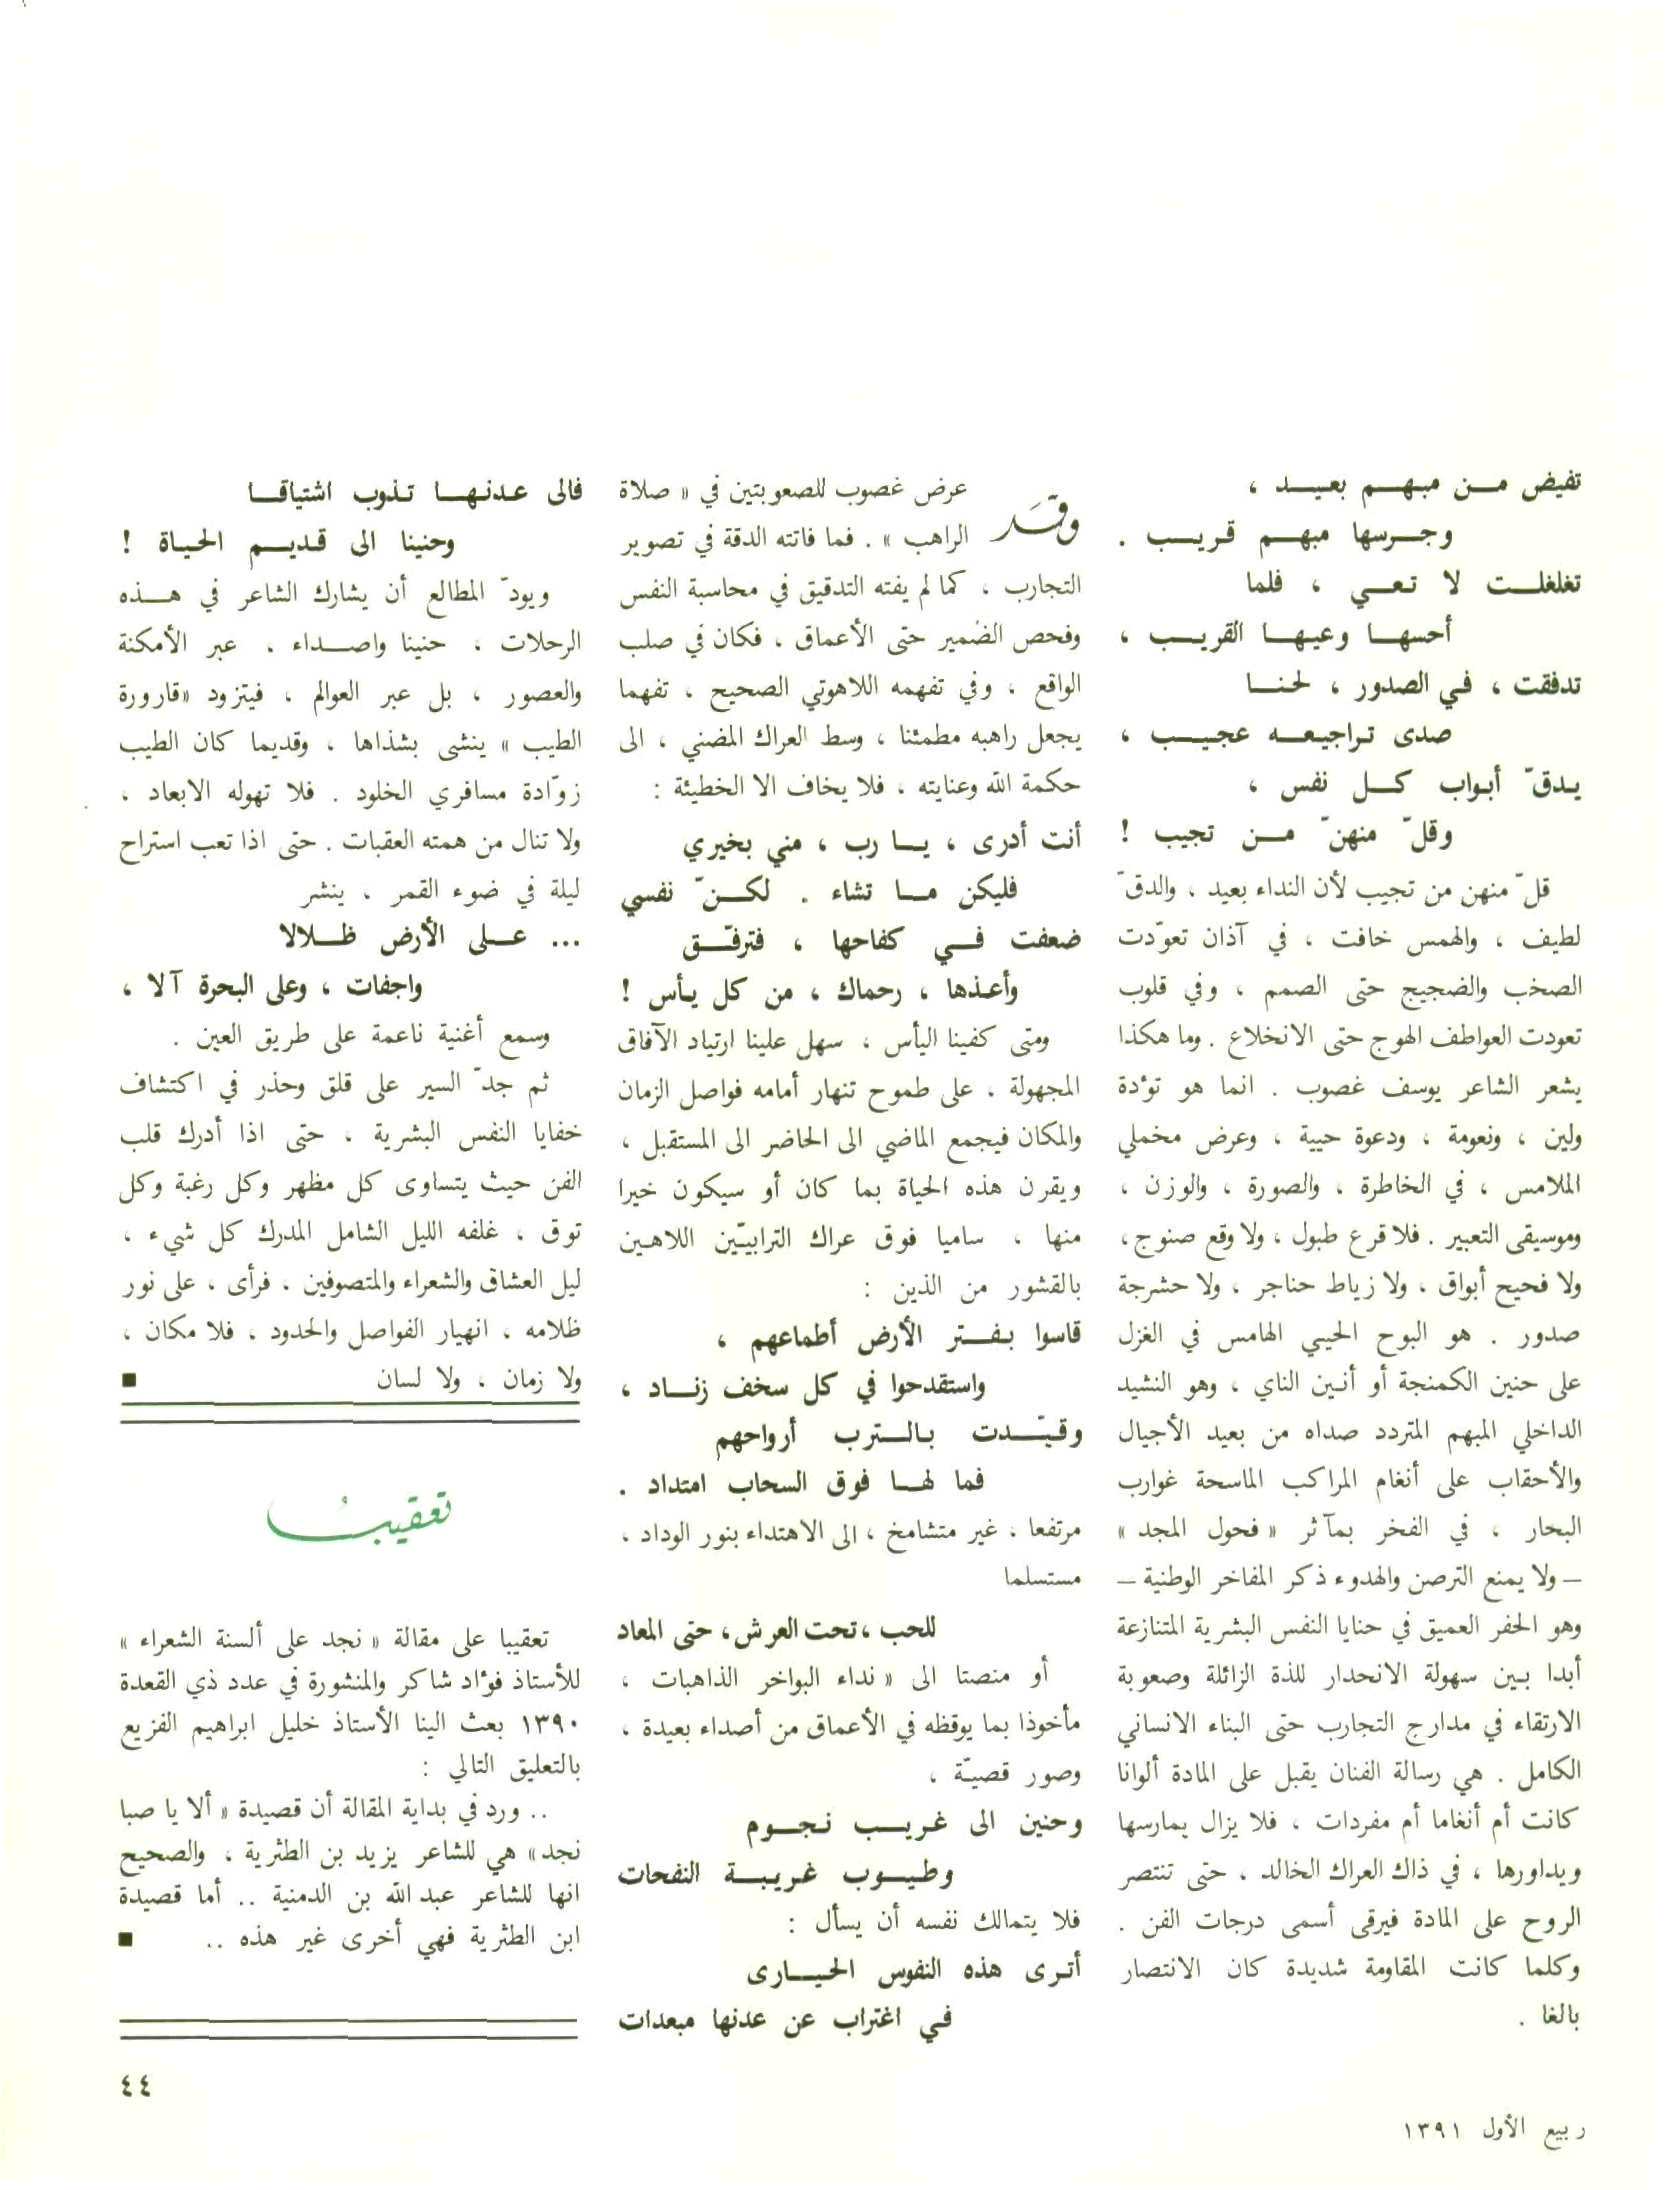 تفيض من مبهم بعيد ،
وجرسها مبهم قريب .
تغلغلت لا تعي ، فلما
أحسها وعيها القريب ،
تدفقت ، في الصدور ، لحنا
صدى تراجيعه عجيب ،
يدقّ أبواب كل نفس ،
وقلّ منهنّ من تجيب !
قلّ منهن من تجيب لأن النداء بعيد ، والدقّ
لطيف ، والهمس خافت ، في آذان تعوّدت
الصخب والضجيج حتى الصمم ، وفي قلوب
تعودت العواطف الهوج حتى الانخلاع . وما هكذا
يشعر الشاعر يوسف غصوب . انما هو تؤدة
ولين ، ونعومة ، ودعوة حيية ، وعرض مخملي
الملامس ، في الخاطرة ، والصورة ، والوزن ،
وموسيقى التعبير . فلا قرع طبول ، ولا وقع صنوج،
ولا فحيح أبواق ، ولا زياط حناجر ، ولا حشرجة
صدور . هو البوح الحيي الهامس في الغزل
على حنين الكمنجة أو أنين الناي ، وهو النشيد
الداخلي المبهم المتردد صداه من بعيد الأجيال
والأحقاب على أنغام المراكب الماسحة غوارب
البحار ، في الفخر بمآثر « فحول المجد »
– ولا يمنع الترصن والهدوء ذكر المفاخر الوطنية –
وهو الحفر العميق في حنايا النفس البشرية المتنازعة
أبدا بين سهولة الانحدار للذة الزائلة وصعوبة
الارتقاء في مدارج التجارب حتى البناء الانساني
الكامل . هي رسالة الفنان يقبل على المادة ألوانا
كانت أم أنغاما أم مفردات ، فلا يزال يمارسها
ويداورها ، في ذاك العراك الخالد ، حتى تنتصر
الروح على المادة فيرقى أسمى درجات الفن .
وكلما كانت المقاومة شديدة كان الانتصار
بالغا .
وقد عرض غصوب للصعوبتين في « صلاة
الراهب » . فما فاتته الدقة في تصوير
التجارب ، كما لم يفته التدقيق في محاسبة النفس
وفحص الضمير حتى الأعماق ، فكان في صلب
الواقع ، وفي تفهمه اللاهوتي الصحيح ، تفهما
يجعل راهبه مطمئنا ، وسط العراك المضني ، الى
حكمة الله وعنايته ، فلا يخاف الا الخطيئة :
أنت أدرى ، يا رب ، مني بخيري
فليكن ما تشاء . لكنّ نفسي
ضعفت في كفاحها ، فترفّق
وأعذها ، رحماك ، من كل يأس !
ومتى كفينا اليأس ، سهل علينا ارتياد الآفاق
المجهولة ، على طموح تنهار أمامه فواصل الزمان
والمكان فيجمع الماضي الى الحاضر الى المستقبل ،
ويقرن هذه الحياة بما كان أو سيكون خيرا
منها ، ساميا فوق عراك الترابيّين اللاهين
بالقشور من الذين :
قاسوا بفتر الأرض أطماعهم ،
واستقدحوا في كل سخف زناد ،
وقيّدت بالترب أرواحهم
فما لها فوق السحاب امتداد .
مرتفعا ، غير متشامخ ، الى الاهتداء بنور الوداد ،
مستسلما
للحب ، تحت العرش ، حتى المعاد
أو منصتا الى « نداء البواخر الذاهبات ،
مأخوذا بما يوقظه في الأعماق من أصداء بعيدة ،
وصور قصيّة ،
وحنين الى غريب نجوم
وطيوب غريبة النفحات
فلا يتمالك نفسه أن يسأل :
أترى هذه النفوس الحيارى
في اغتراب عن عدنها مبعدات
فالى عدنها تذوب اشتياقا
وحنينا الى قديم الحياة !
ويودّ المطالع أن يشارك الشاعر في هذه
الرحلات ، حنينا واصداء ، عبر الأمكنة
والعصور ، بل عبر العوالم ، فيتزود «قارورة
الطيب » ينشى بشذاها ، وقديما كان الطيب
زوّادة مسافري الخلود . فلا تهوله الابعاد ،
ولا تنال من همته العقبات . حتى اذا تعب استراح
ليلة في ضوء القمر ، ينشر
... على الأرض ظلالا
واجفات ، وعلى البحرة آلا ،
وسمع أغنية ناعمة على طريق العين .
ثم جدّ السير على قلق وحذر في اكتشاف
خفايا النفس البشرية ، حتى اذا أدرك قلب
الفن حيث يتساوى كل مظهر وكل رغبة وكل
توق ، غلفه الليل الشامل المدرك كل شيء ،
ليل العشاق والشعراء والمتصوفين . فرأى ، على نور
ظلامه ، انهيار الفواصل والحدود ، فلا مكان ،
ولا زمان ، ولا لسان ■
تعقيب
تعقيبا على مقالة « نجد على ألسنة الشعراء »
للأستاذ فؤاد شاكر والمنشورة في عدد ذي القعدة
١٣٩٠ بعث الينا الأستاذ خليل ابراهيم الفزيع
بالتعليق التالي :
.. ورد في بداية المقالة أن قصيدة « ألا يا صبا
نجد» هي للشاعر يزيد بن الطثرية ، والصحيح
انها للشاعر عبد الله بن الدمنية .. أما قصيدة
ابن الطثرية فهي أخرى غير هذه .. ■
٤٤
ربيع الأول ١٣٩١